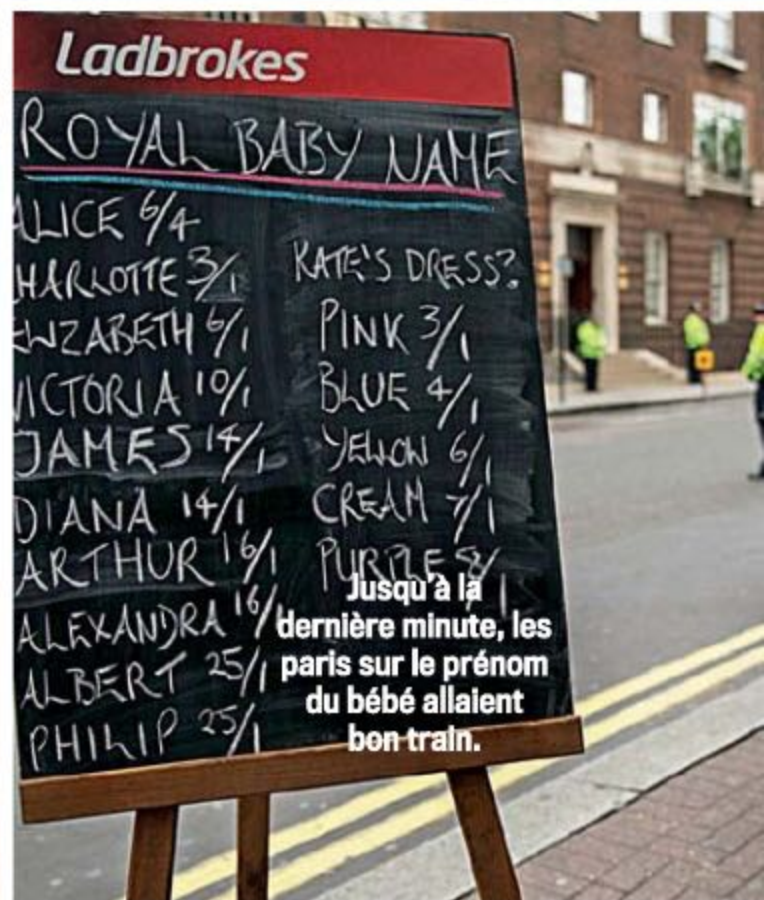 Ladbrokes
ROYAL BABY NAME
ALICE 6/4
HARLOTTE 3/1
ELIZABETH 6/1
VICTORIA 10/1
JAMES 14/1
DIANA 14/1
ARTHUR 16/1
ALEXANDRA 16/
ALBERT 25/1
PHILIP 25/1
KATE'S DRESS?
PINK 3/1
BLUE 4/1
YELLOW 6/1
CREAM 7/1
PURPLE 8/1
Jusqu'à la
dernière minute, les
paris sur le prénom
du bébé allaient
bon train.